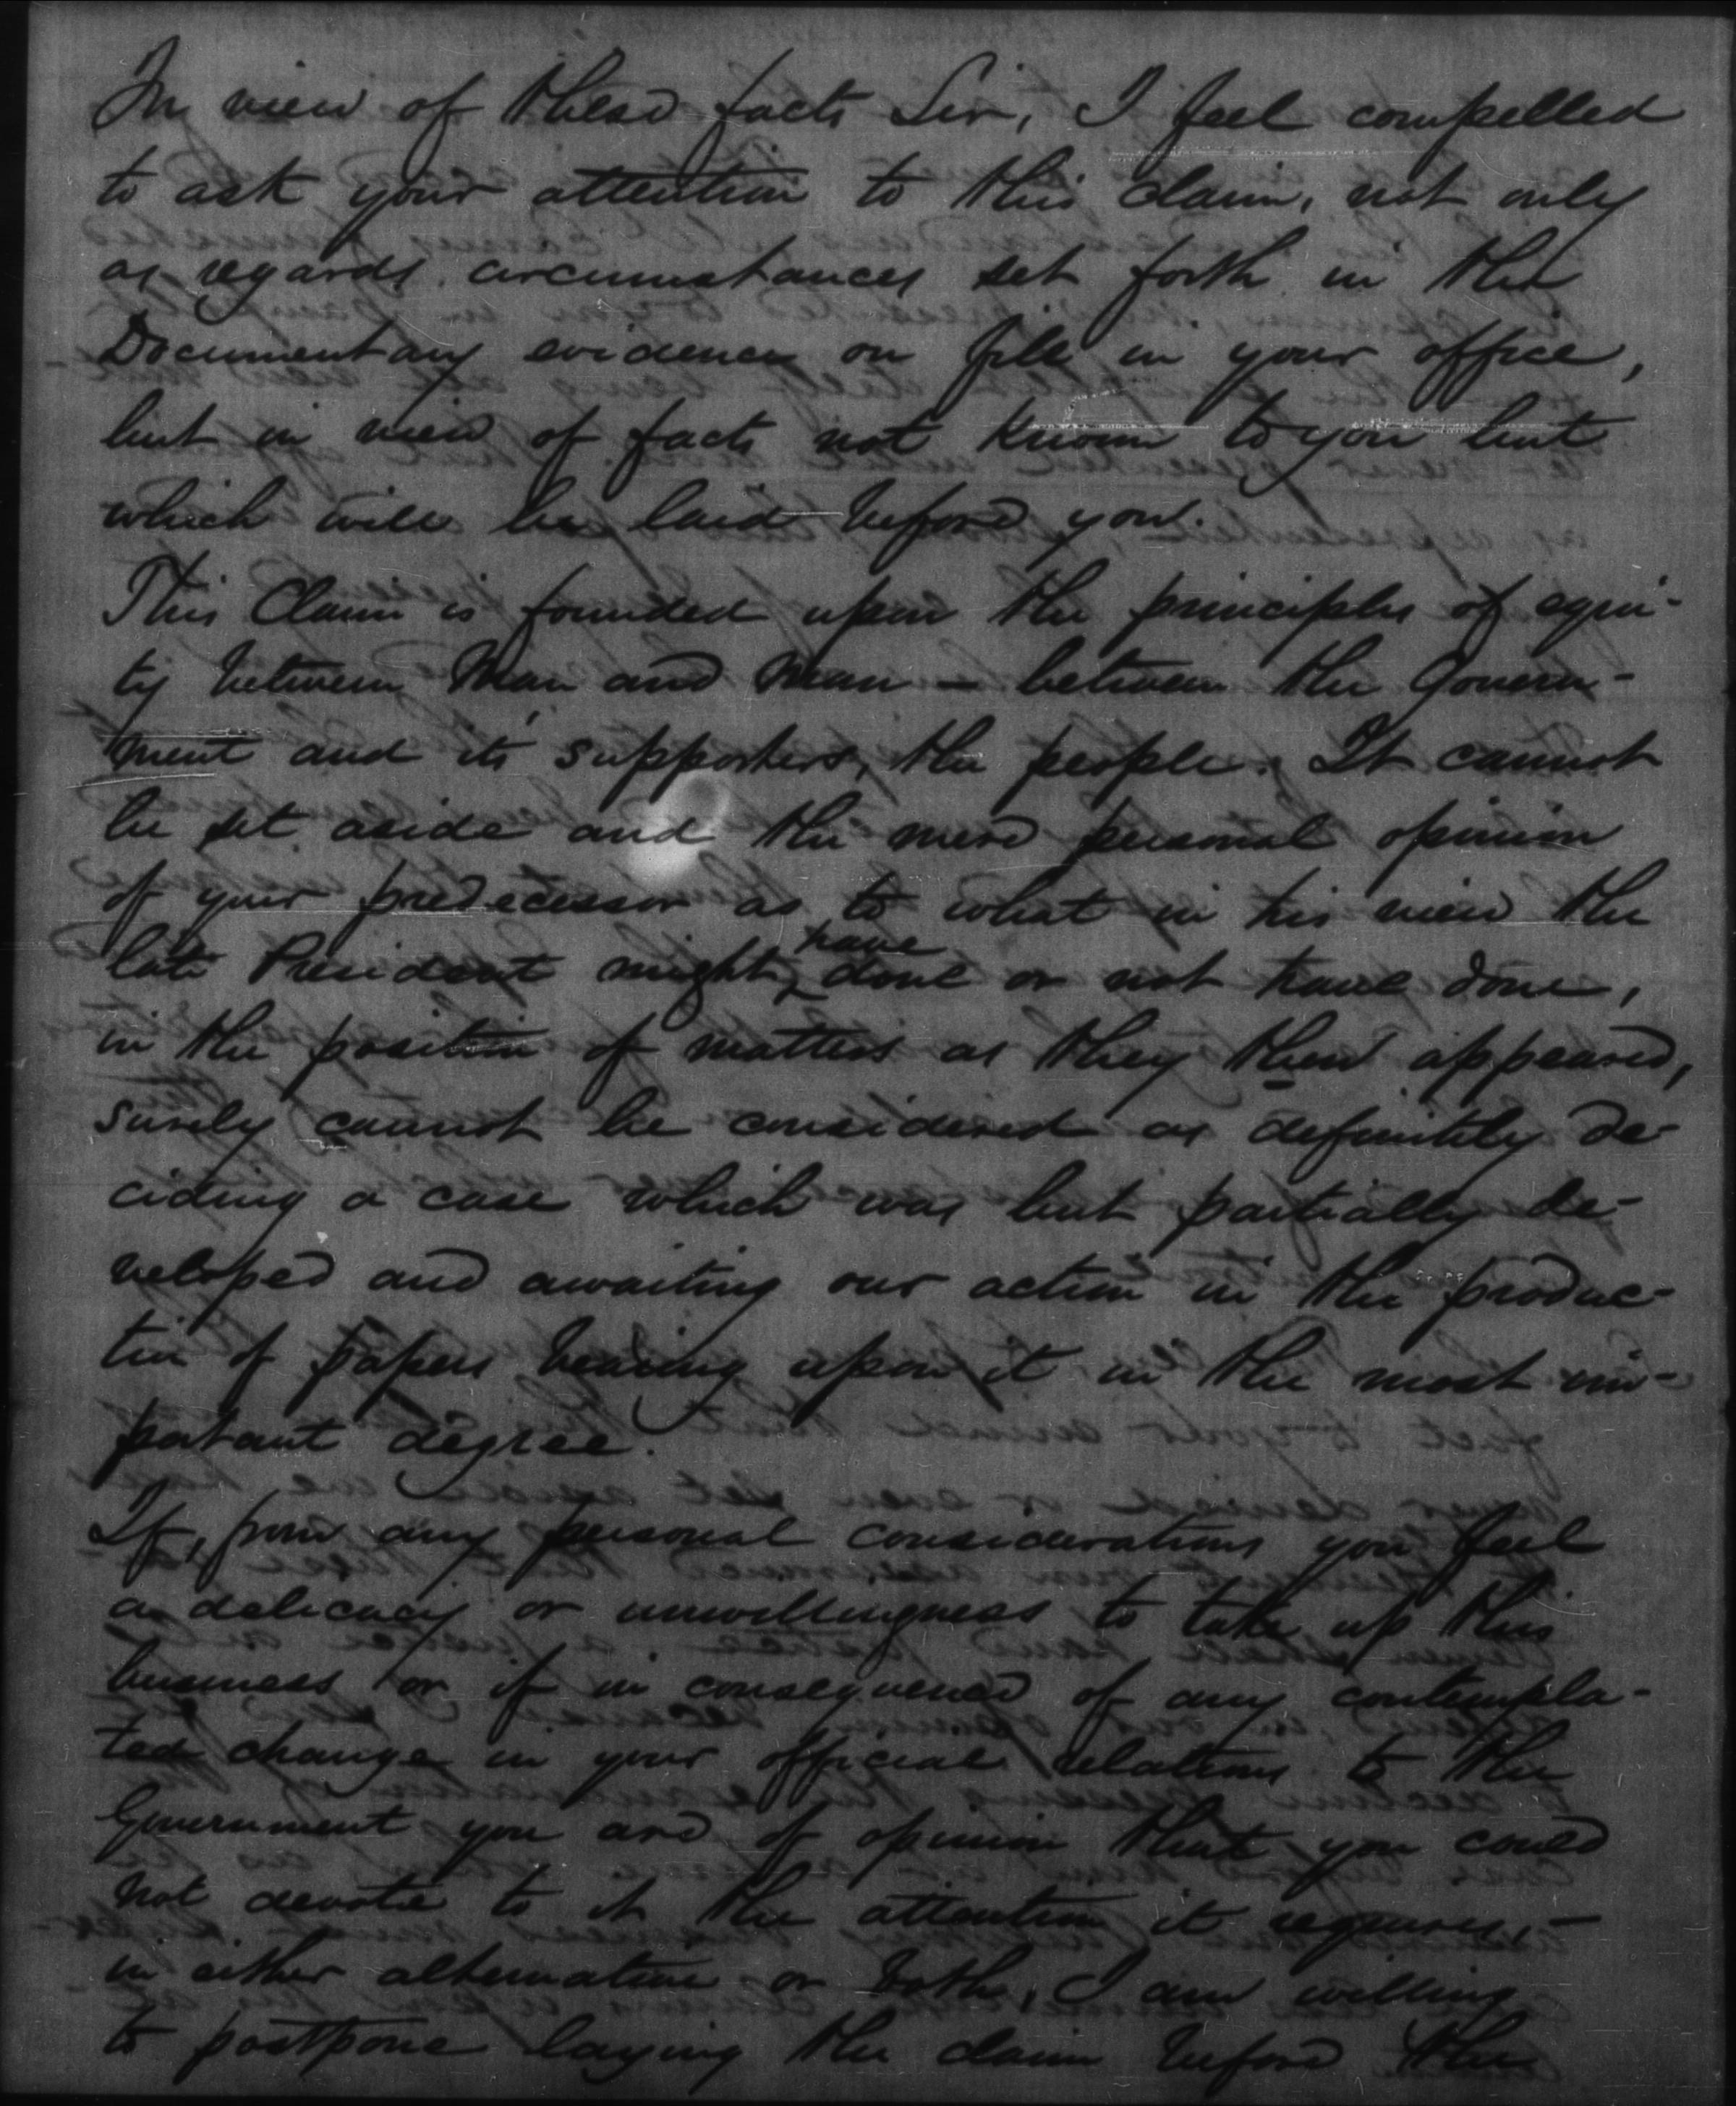 In view of these facts Sir, I feel compelled
to ask your attention to this claim, not only
as regards circumstances set forth in the
Documentary evidence on file in your office,
but in view of facts not known to you but
which will be laid before you.
This Claim is founded upon the principles of equi-
ty between Man and Man — between the Govern-
ment and its supporters, the people. It cannot
be set aside and the mere personal opinion
of your predecessor as to what in his view the
late President might have done or not have done,
in the position of matters as they then appeared,
surely cannot be considered as definitely de-
ciding a case which was but partially de-
veloped and awaiting our action in the produc-
tion of papers bearing upon it in the most im-
portant degree.
If, from any personal considerations you feel
a delicacy or unwillingness to take up this
business or if in consequence of any contempla-
ted change in your official relations to the
Government you are of opinion that you could
not devote to it the attention it requires, —
in either alternative or both, I am willing
to postpone laying the claim before the